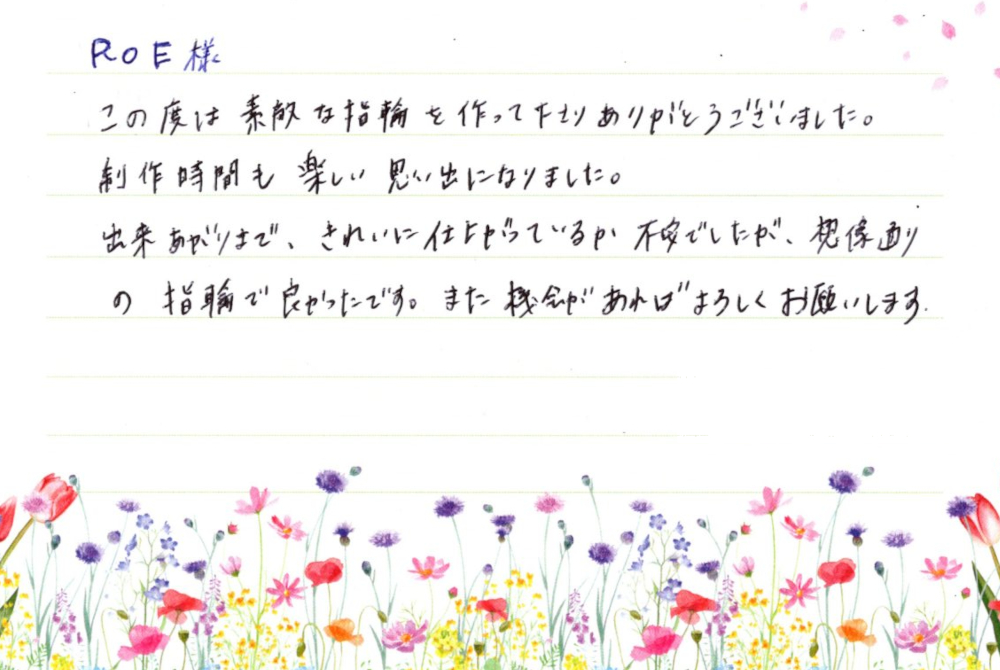 ROE様
この度は素敵な指輪を作って下さりありがとうございました。
制作時間も楽しい思い出になりました。
出来あがりまで、きれいに仕上がっているか不安でしたが、想像通り
の指輪で良かったです。また機会があればよろしくお願いします.